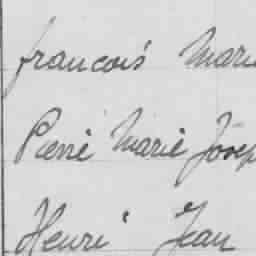 francois Marie
Pierre Marie Josep
Henri Jean